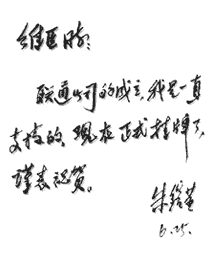 维臣同志:
联通公司的成立,我是一真
支持的,现在正式挂牌了,
谨表祝贺。
朱镕基
6.25.